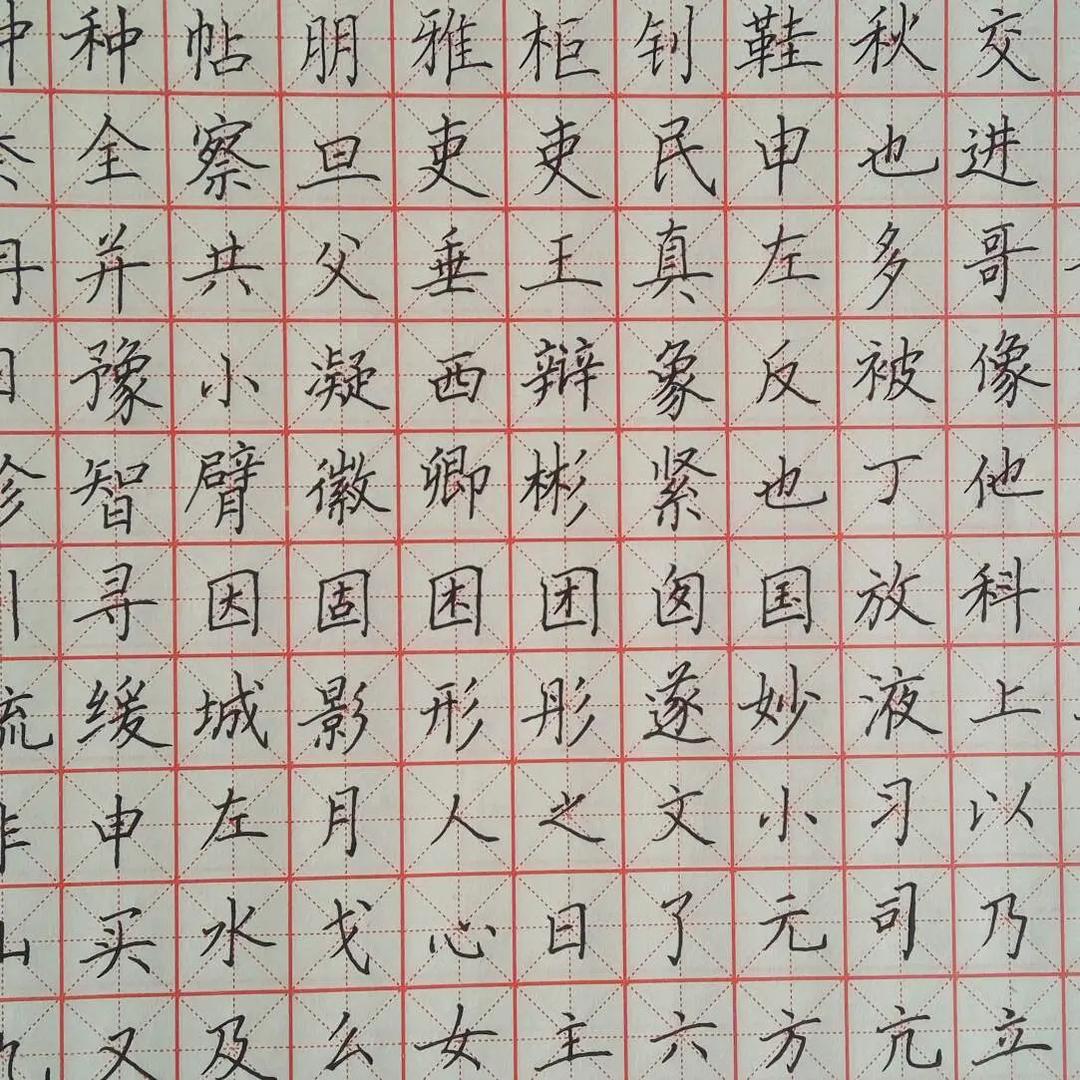 种帖朋雅柜钊鞋秋交
全察旦吏吏民申也进
并共父垂王真左多哥
豫小凝西辩象反被像
智臂徽卿彬紧也丁他
寻因固困团囱国放科
缓城影形彤遂妙液上
申左月人之文小习以
买水戈心日了元司乃
又及么女主六方亢立